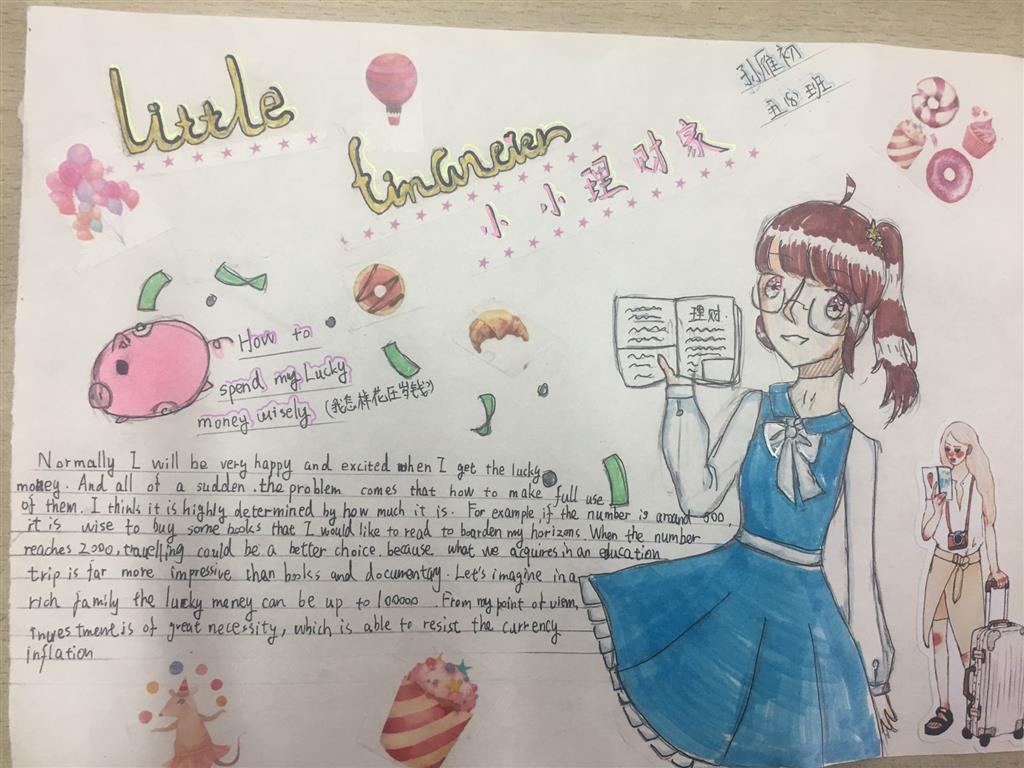 Little
financier
小小理财家
孙雁初
五(8)班
理财
How to
spend my Lucky
money wisely (我怎样花压岁钱?)
Normally I will be very happy and excited when I get the lucky
money. And all of a sudden .the problem comes that how to make full use
of them. I think it is highly determined by how much it is. For example, if the number is around 500,
it is wise to buy some books that I would like to read to boarden my horizons When the number
reaches 2000, travelling could be a better choice. because what we acquires in an education
trip is far more impressive than books and documentary. Let's imagine in a
rich family the lucky money can be up to 100000. From my point of view,
investment is of great necessity, which is able to resist the currency
inflation